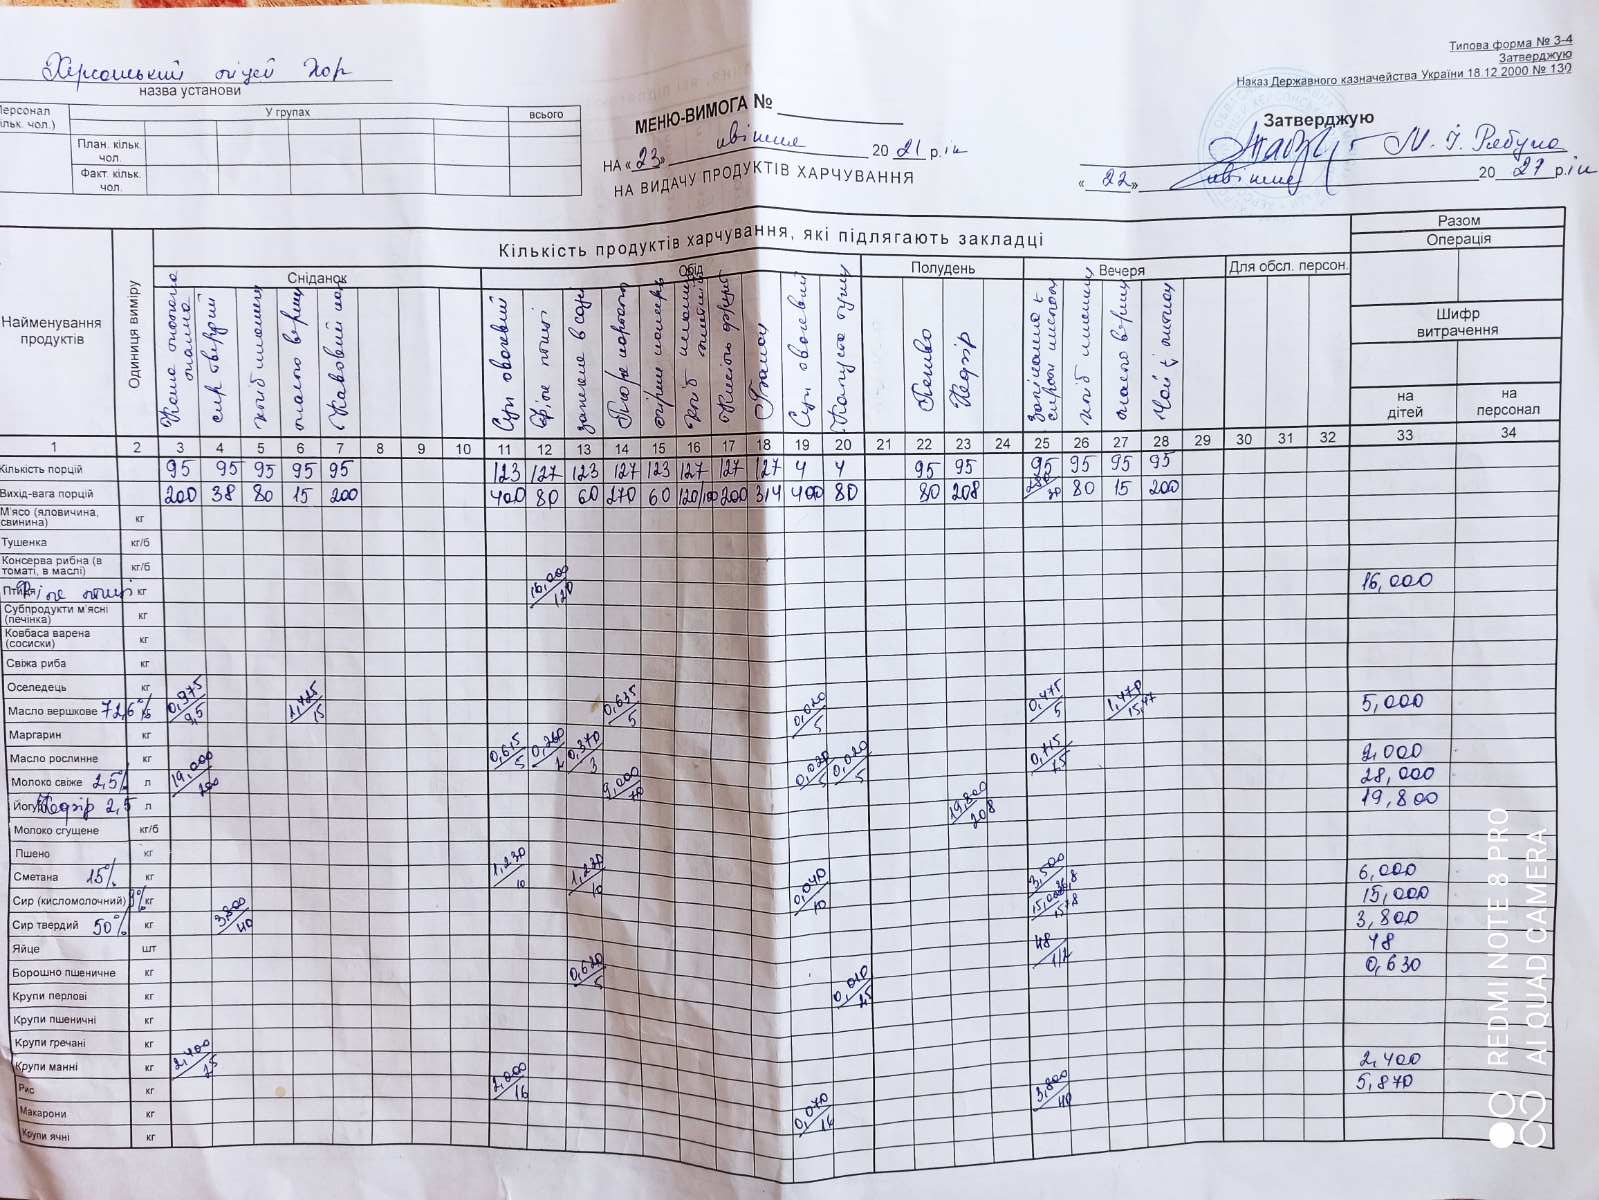 Типова форма № З-4
Затверджую
Наказ Державного казначейства України 18.12.2000 № 130
Херсонський ліцей ХОР
назва установи
Персонал
(кільк. чол.)
У групах
всього
План. кільк. чол.
Факт. кільк. чол.
МЕНЮ-ВИМОГА №
НА «23» квітня 2021 р.
НА ВИДАЧУ ПРОДУКТІВ ХАРЧУВАННЯ
Затверджую
«22» квітня 20 р.
Найменування продуктів
Одиниця виміру
Кількість продуктів харчування, які підлягають закладці
Разом
Операція
Сніданок
Обід
Полудень
Вечеря
Для обсл. персон.
Шифр витрачення
на дітей
на персонал
Каша молочна манна
Сир твердий
Хліб
Масло верш
Кавовий нап
Суп овочевий
Філе птиці
Пюре картоп
Хліб
Банан
Суп овочевий
Капуста туш
Печиво
Кефір
Хліб
Масло верш
Чай з
1 2 3 4 5 6 7 8 9 10 11 12 13 14 15 16 17 18 19 20 21 22 23 24 25 26 27 28 29 30 31 32 33 34
Кількість порцій 95 95 95 95 95 123 127 123 127 123 127 127 127 4 4 95 95 95 95 95 95
Вихід-вага порцій 200 38 80 15 200 400 80 60 270 60 120/100 200 314 400 80 80 208 80 15 200
М'ясо (яловичина, свинина) кг
Тушенка кг/б
Консерва рибна (в томаті, в маслі) кг/б
Птиця Філе птиці кг 16,000/120 16,000
Субпродукти м'ясні (печінка) кг
Ковбаса варена (сосиски) кг
Свіжа риба кг
Оселедець кг
Масло вершкове 72,6% 0,975/9,5 1,425/15 0,635/5 0,020/5 0,475/5 1,470/15,47 5,000
Маргарин кг
Масло рослинне кг 0,615/5 0,260/2 0,370/3 0,020/5 0,020/5 0,715/7,5 2,000
Молоко свіже 2,5% л 19,000/200 9,000/70 28,000
Йогурт Кефір 2,5 л 19,800/208 19,800
Молоко сгущене кг/б
Пшено кг
Сметана 15% кг 1,230/10 1,230/10 0,040/10 3,500/36,8 6,000
Сир (кисломолочний) 9% кг 15,000/157,8 15,000
Сир твердий 50% кг 3,800/40 3,800
Яйце шт 48/1/2 48
Борошно пшеничне кг 0,620/5 0,010/2,5 0,630
Крупи перлові кг
Крупи пшеничні кг
Крупи гречані кг
Крупи манні кг 2,400/25 2,400
Рис кг 2,000/16 0,070/16 3,800/40 5,870
Макарони кг
Крупи ячні кг
REDMI NOTE 8 PRO
AI QUAD CAMERA